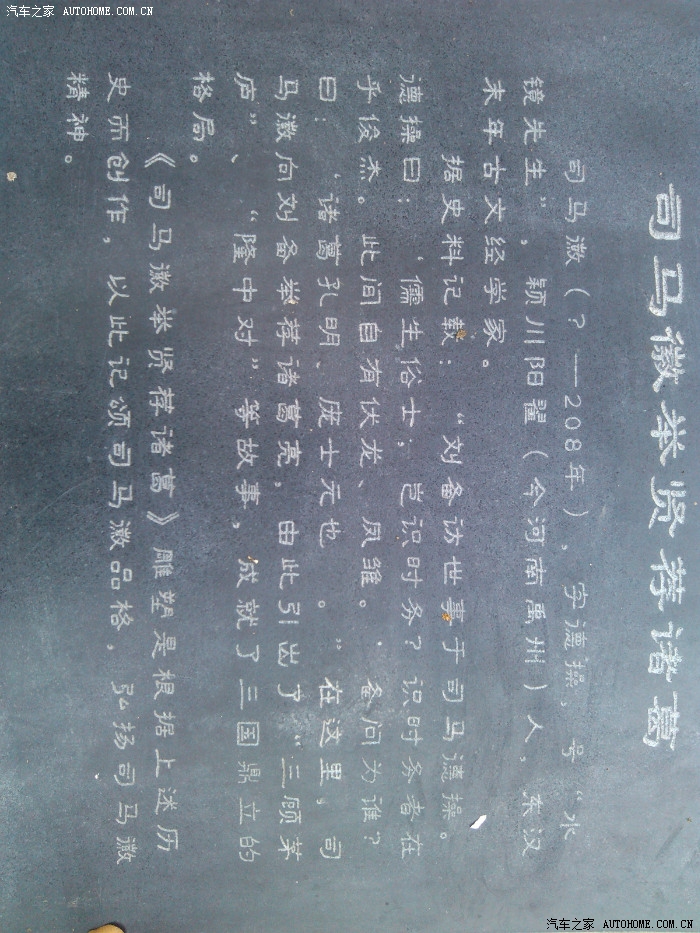 汽车之家 AUTOHOME.COM.CN
司马徽举贤荐诸葛
司马徽（?—208年），字德操，号“水
镜先生”，颍川阳翟（今河南禹州）人，东汉
末年古文经学家。
据史料记载：“刘备访世事于司马德操。
德操曰：‘儒生俗士，岂识时务？识时务者在
乎俊杰。此间自有伏龙、凤雏。’备问为谁？
曰：‘诸葛孔明、庞士元也。”在这里，司
马徽向刘备举荐诸葛亮，由此引出了“三顾茅
庐”、“隆中对”等故事，成就了三国鼎立的
格局。
《司马徽举贤荐诸葛》雕塑是根据上述历
史而创作，以此记颂司马徽品格，弘扬司马徽
精神。
汽车之家 AUTOHOME.COM.CN